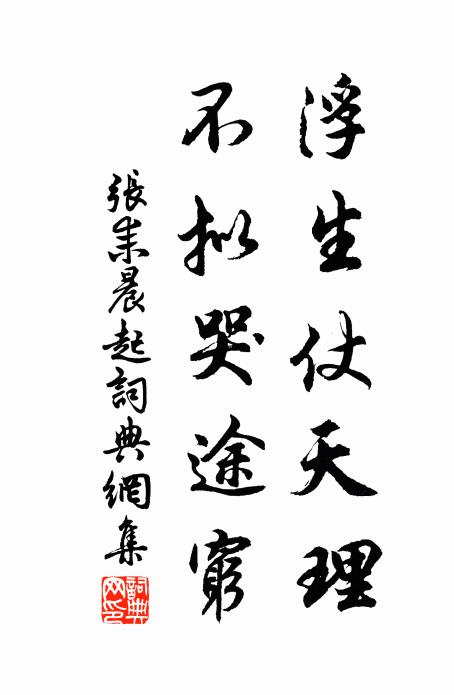 浮生仗天理
不拟哭途窮
張耒晨起詞典網集
詞典網印